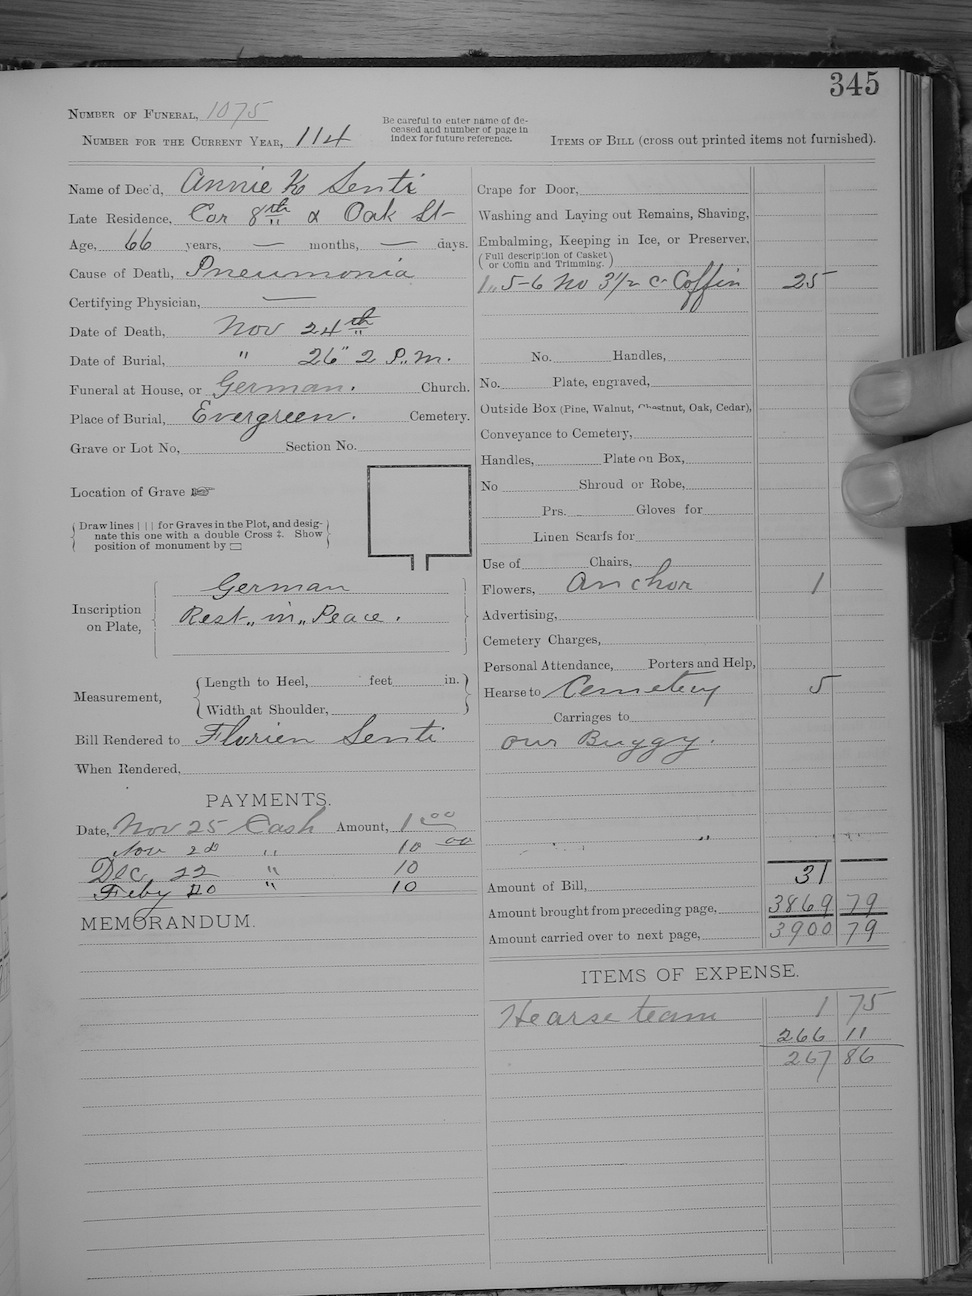 345
NUMBER OF FUNERAL, 1075
NUMBER FOR THE CURRENT YEAR, 114
Be careful to enter name of de-
ceased and number of page in
index for future reference.
ITEMS OF BILL (cross out printed items not furnished).
Name of Dec'd, Annie K Senti
Late Residence, Cor 8th & Oak St
Age, 66 years, — months, — days.
Cause of Death, Pneumonia
Certifying Physician, —
Date of Death, Nov 24th
Date of Burial, " 26" 2 P.M.
Funeral at House, or German. Church.
Place of Burial, Evergreen. Cemetery.
Grave or Lot No, Section No.
Location of Grave ☞
Draw lines | | | for Graves in the Plot, and desig-
nate this one with a double Cross ‡. Show
position of monument by ▭
Inscription
on Plate,
German
Rest „ in „ Peace.
Measurement,
Length to Heel, feet in.
Width at Shoulder,
Bill Rendered to Florien Senti
When Rendered,
PAYMENTS.
Date, Nov 25 Cash Amount, 1 00
Nov 28 " 10 00
Dec 22 " 10
Feby 20 " 10
MEMORANDUM.
Crape for Door,
Washing and Laying out Remains, Shaving,
Embalming, Keeping in Ice, or Preserver,
(Full description of Casket
or Coffin and Trimming.)
1 „ 5-6 No 3 1/2 C Coffin 25
No. Handles,
No. Plate, engraved,
Outside Box (Pine, Walnut, Chestnut, Oak, Cedar),
Conveyance to Cemetery,
Handles, Plate on Box,
No Shroud or Robe,
Prs. Gloves for
Linen Scarfs for
Use of Chairs,
Flowers, Anchor 1
Advertising,
Cemetery Charges,
Personal Attendance, Porters and Help,
Hearse to Cemetery 5
Carriages to
our Buggy.
Amount of Bill, 31
Amount brought from preceding page, 3869 79
Amount carried over to next page, 3900 79
ITEMS OF EXPENSE.
Hearse team 1 75
266 11
267 86